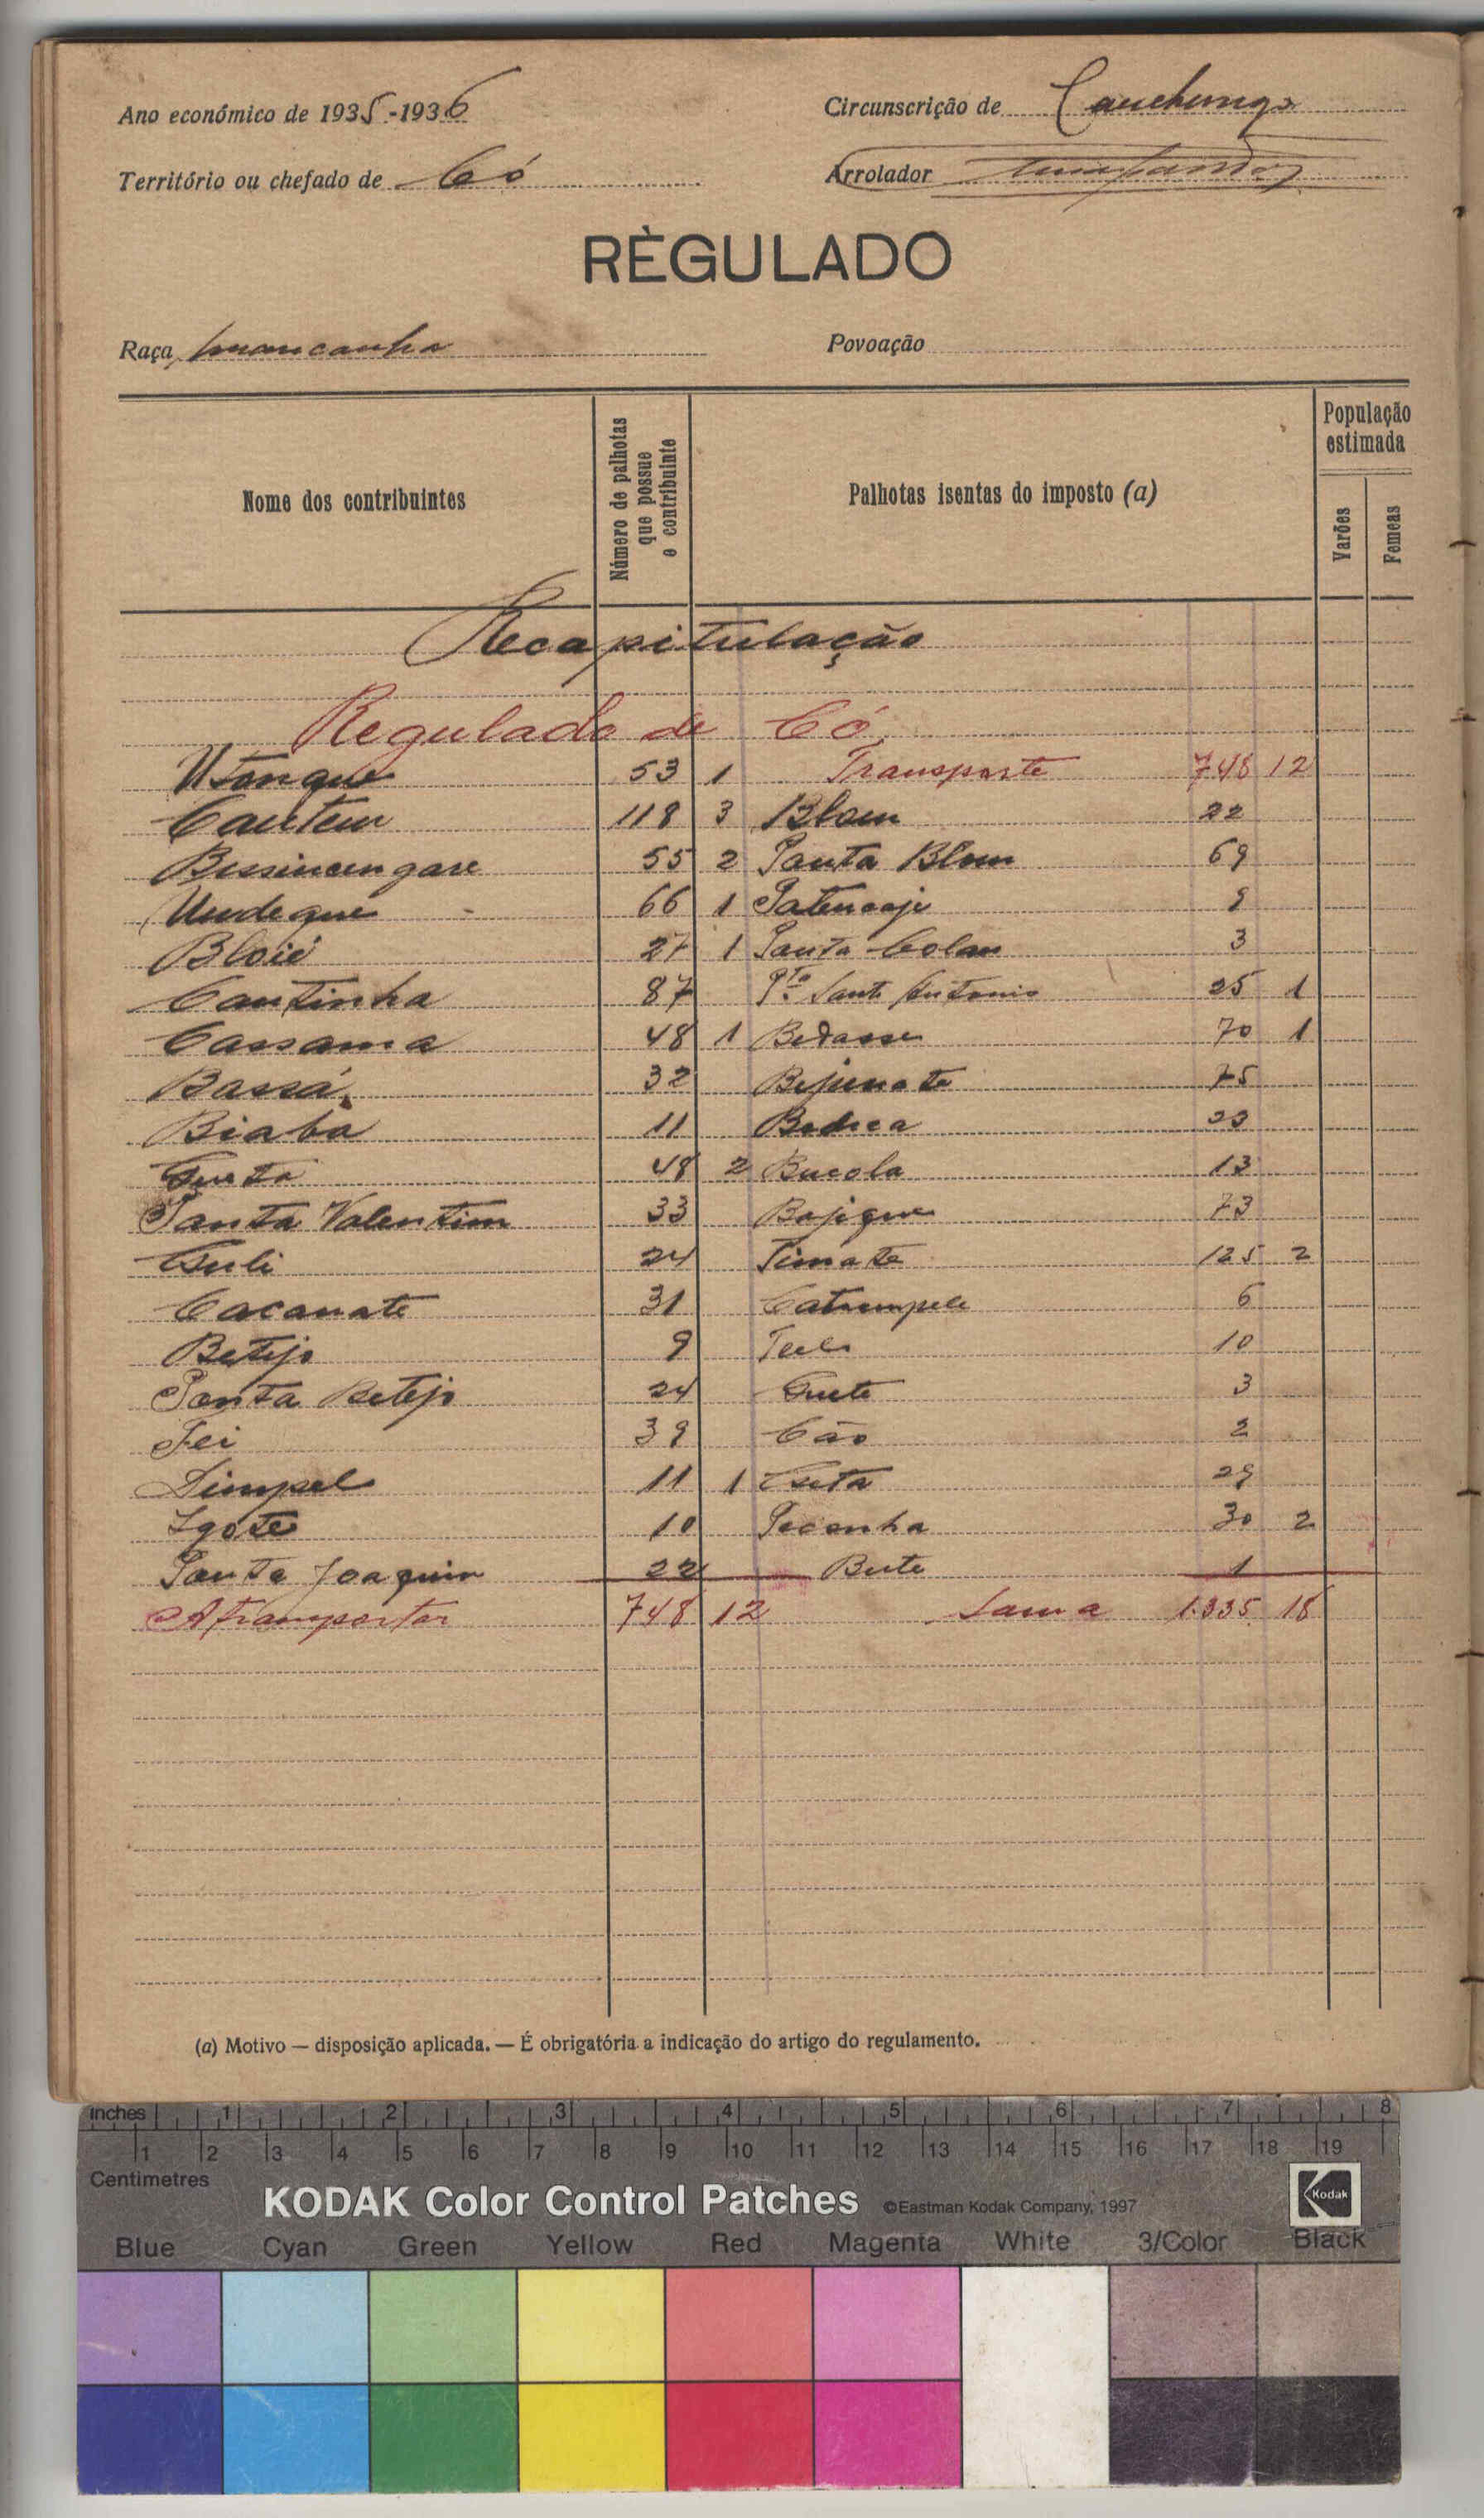 Ano económico de 1935-1936
Circunscrição de Canchungo
Território ou chefado de Có
Arrolador
RÈGULADO
Raça mancanha
Povoação
Nome dos contribuintes
Número de palhotas que possue o contribuinte
Palhotas isentas do imposto (a)
População estimada
Varões
Femeas
Recapitulação
Regulado de Có
53 1 Transporte 748 12
118 3 Blom 22
55 2 Ponta Blom 69
66 1
Bloié 27 1 Ponta Colan 3
Cantinha 87 Pta. Santo Antonio 25 1
Cassama 48 1 Bedasse 70 1
Bassá 32 Bejimate 75
Biaba 11 Bedrea 23
48 2 Bucola 13
Ponta Valentim 33 Bajique 73
24 Timate 125 2
Cacanate 31 Catumpele 6
Betijo 9 10
Ponta Betijo 24 3
Fei 39 Cão 2
Simpel 11 1 29
10 Pecanha 30 2
Ponta Joaquim 22 Bute 1
A transportar 748 12 Soma 1.335 18
(a) Motivo — disposição aplicada. — É obrigatória a indicação do artigo do regulamento.
inches 1 2 3 4 5 6 7 8
1 2 3 4 5 6 7 8 9 10 11 12 13 14 15 16 17 18 19
Centimetres
KODAK Color Control Patches ©Eastman Kodak Company, 1997 Kodak
Blue Cyan Green Yellow Red Magenta White 3/Color Black